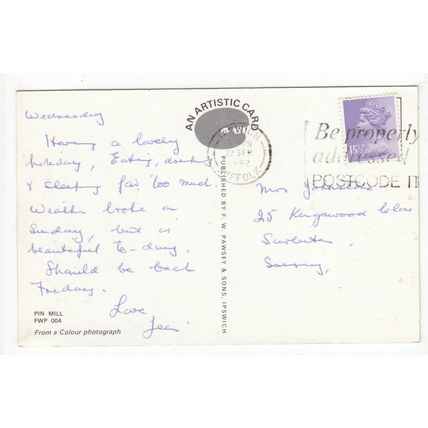 Wednesday
Having a lovely
holiday, Eating, drinking
& sleeping far too much.
Weather broke on
Sunday, but is
beautiful to-day.
Should be back
Friday.
Love
Jean
PIN MILL
FWP 004
From a Colour photograph
AN ARTISTIC CARD
PUBLISHED BY F. W. PAWSEY & SONS, IPSWICH
IPSWICH
SEP
SUFFOLK
Be properly
addressed
POSTCODE IT
Mrs
25 Kingswood Close
Surbiton
Surrey,